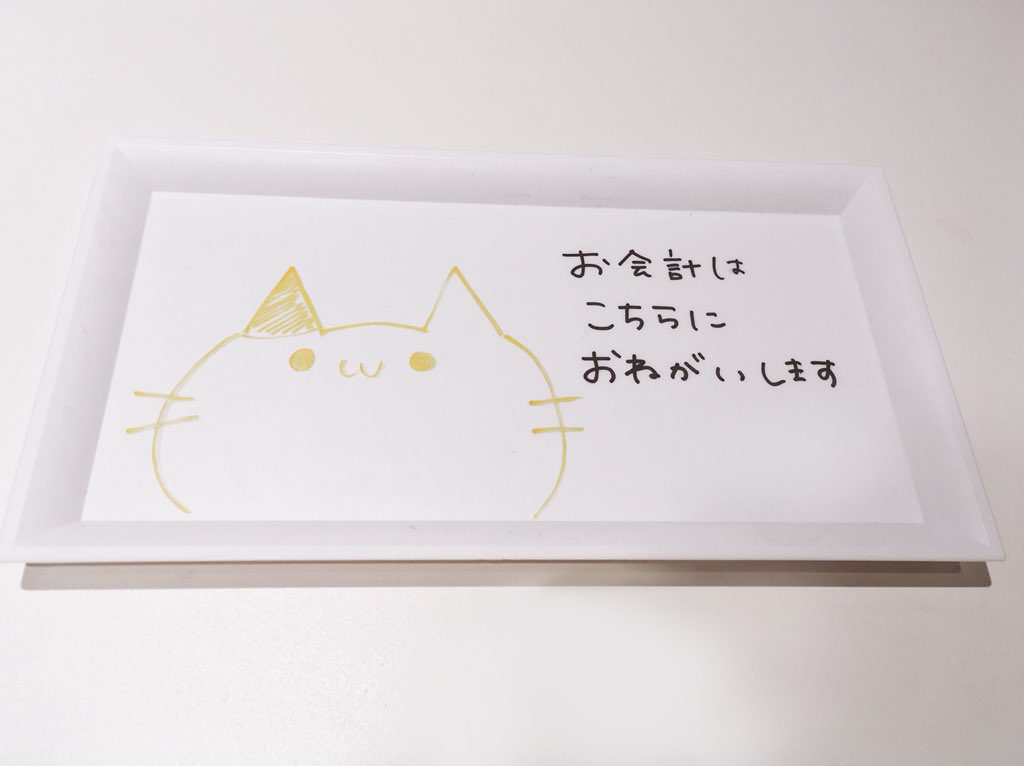 お会計は
こちらに
おねがいします